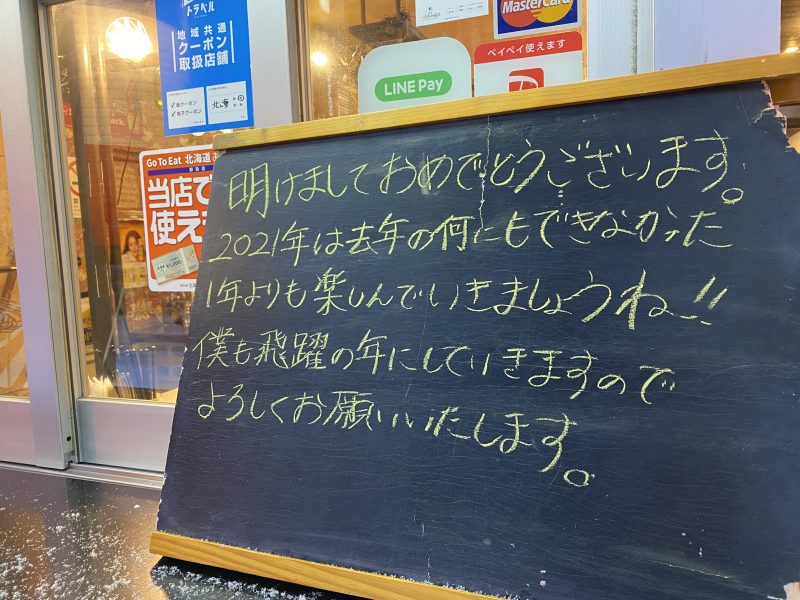 トラベル
地域共通
クーポン
取扱店舗
紙クーポン
電子クーポン
北海
MasterCard
ペイペイ使えます
LINE Pay
Go To Eat 北海道
当店で
使え
明けましておめでとうございます。
2021年は去年の何にもできなかった
1年よりも楽しんでいきましょうね!!
僕も飛躍の年にしていきますので
よろしくお願いいたします。